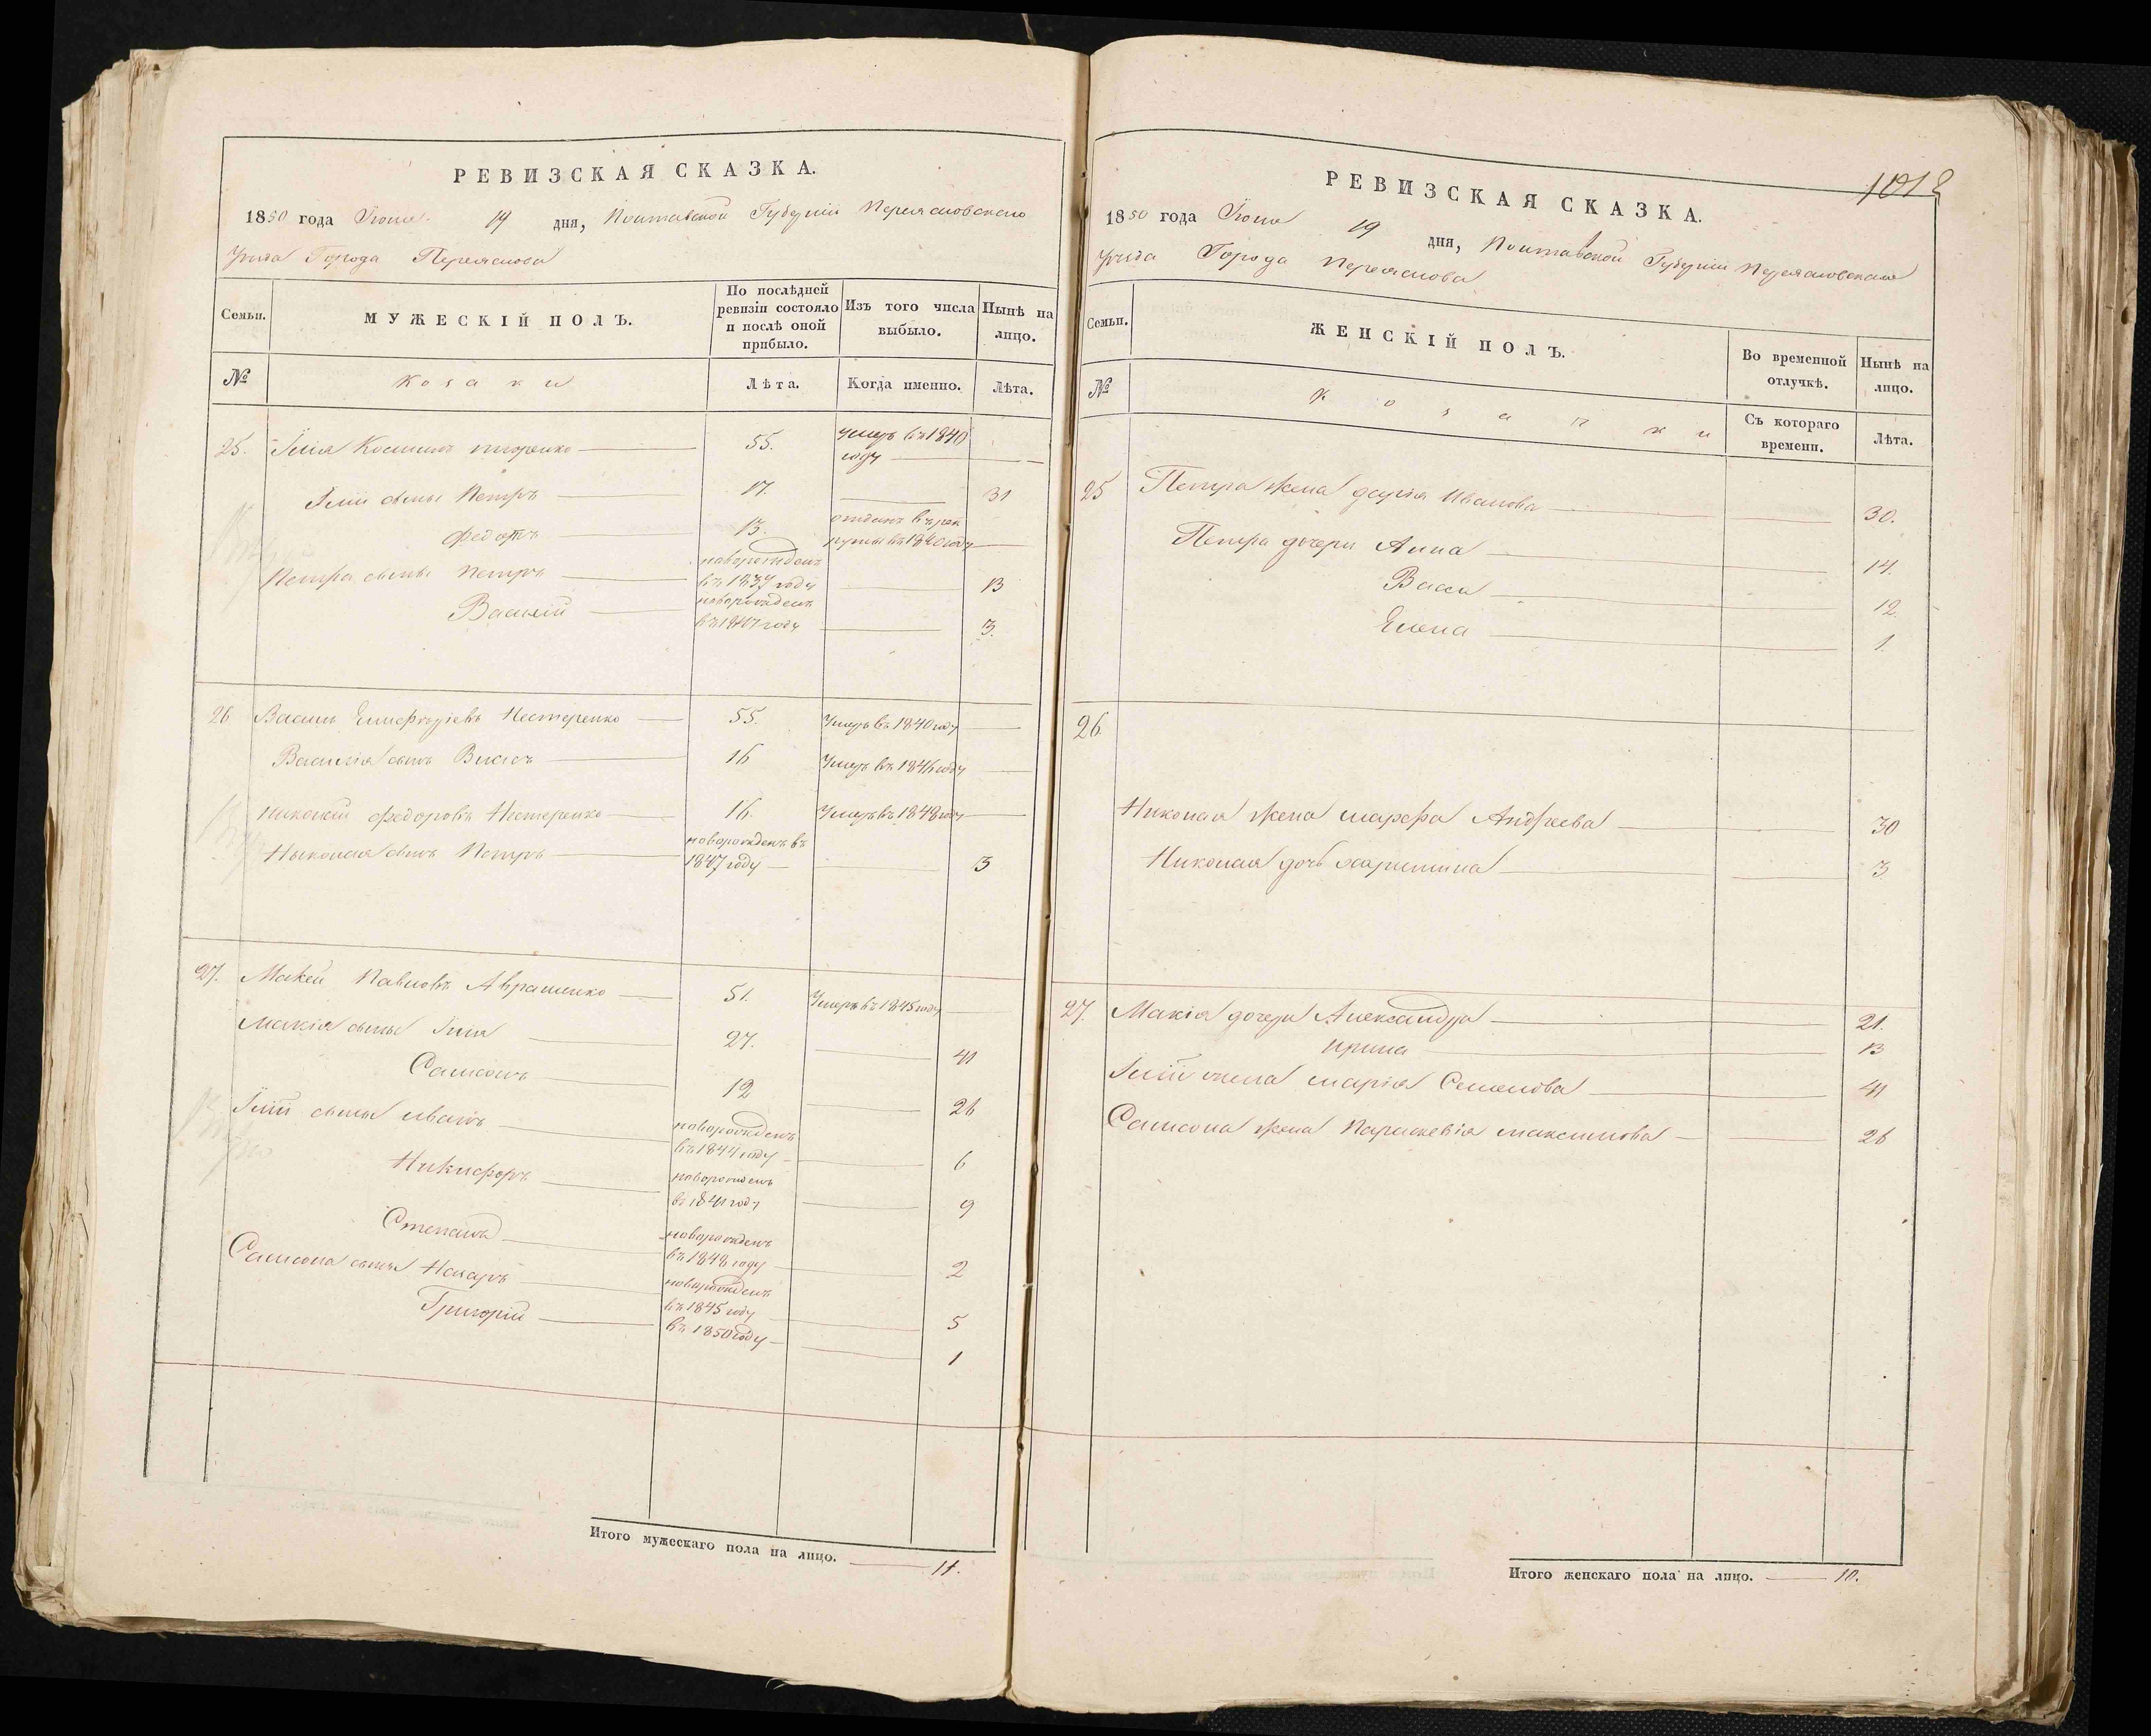 РЕВИЗСКАЯ СКАЗКА.
1850 года Іюня 19 дня, Полтавской Губерніи Переясловского
Уезда Города Переяслова
Семьи.
МУЖЕСКІЙ ПОЛЪ.
По послѣдней ревизіи состояло и послѣ оной прибыло.
Изъ того числа выбыло.
Нынѣ на лицо.
№ Козаки Лѣта. Когда именно. Лѣта.
25. Ілія 55. умеръ въ 1840
году
Іліи сыны Петръ 17. 31
Федотъ 13. отданъ въ рек
руты въ 1840 году
Петра сыны Петръ новорожденъ
въ 1837 году 13
Василій новорожденъ
въ 1847 году 3.
26 Василь Нестеренко 55. Умеръ въ 1840 году
Василія сынъ Власъ 16 Умеръ въ 1846 году
Николай Федоровъ Нестеренко 16. Умеръ въ 1848 году
Николая сынъ Петръ новорожденъ въ
1847 году 3
27. Макей Павловъ Аврашенко 51. Умеръ въ 1845 году
Макія сыны Ілія 27. 41
Самсонъ 12 26
Іліи сыны Иванъ новорожденъ
въ 1844 году 6
Никифоръ новорожденъ
въ 1841 году 9
Степанъ новорожденъ
въ 1848 году 2
Самсона сыны Назаръ новорожденъ
въ 1845 году 5
Григорій въ 1850 году 1
Итого мужескаго пола на лицо. 11.
1012
РЕВИЗСКАЯ СКАЗКА.
1850 года Іюня 19 дня, Полтавской Губерніи Переясловского
Уезда Города Переяслова
Семьи.
ЖЕНСКІЙ ПОЛЪ.
Во временной отлучкѣ.
Нынѣ на лицо.
№ Козачки Съ котораго времени. Лѣта.
25 Петра жена Дарія Иванова 30.
Петра дочери Анна 14.
Васса 12
Елена 1.
26.
Николая жена Марфа Андреева 30
Николая дочь Харитина 3
27. Макія дочери Александра 21.
Ирина 13
Іліи жена Марія Семенова 41
Самсона жена Параскевія Максимова 26
Итого женскаго пола на лицо. 10.